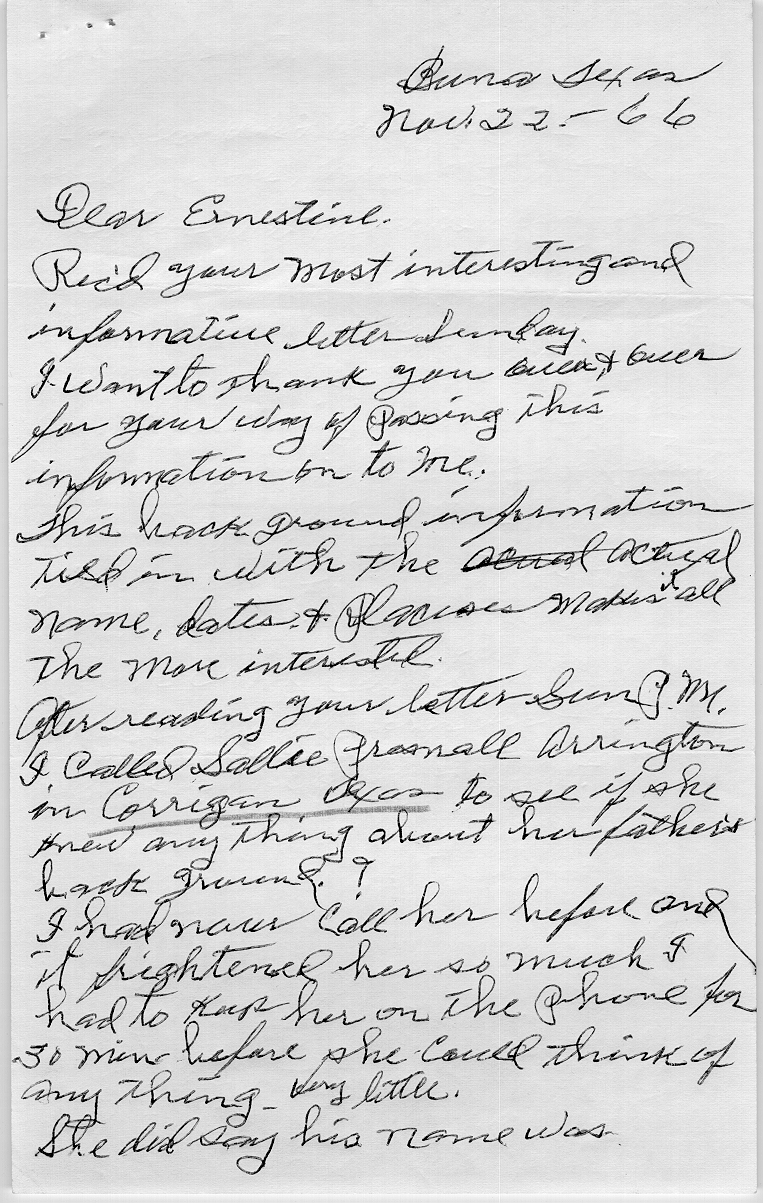 Buna Texas
Nov. 22 - 66
Dear Ernestine.
Rec'd your most interesting and
informative letter Sunday.
I want to thank you over & over
for your way of passing this
information on to me.
This back ground information
tied in with the actual actual
name, dates & places makes it all
the more interested.
After reading your letter Sun P.M.
I called Sallie Arrington
in Corrigan Texas to see if she
knew any thing about her father's
back ground. ?
I had never call her before and
it frightened her so much I
had to keep her on the phone for
30 min before she could think of
any thing - very little.
She did say his name was